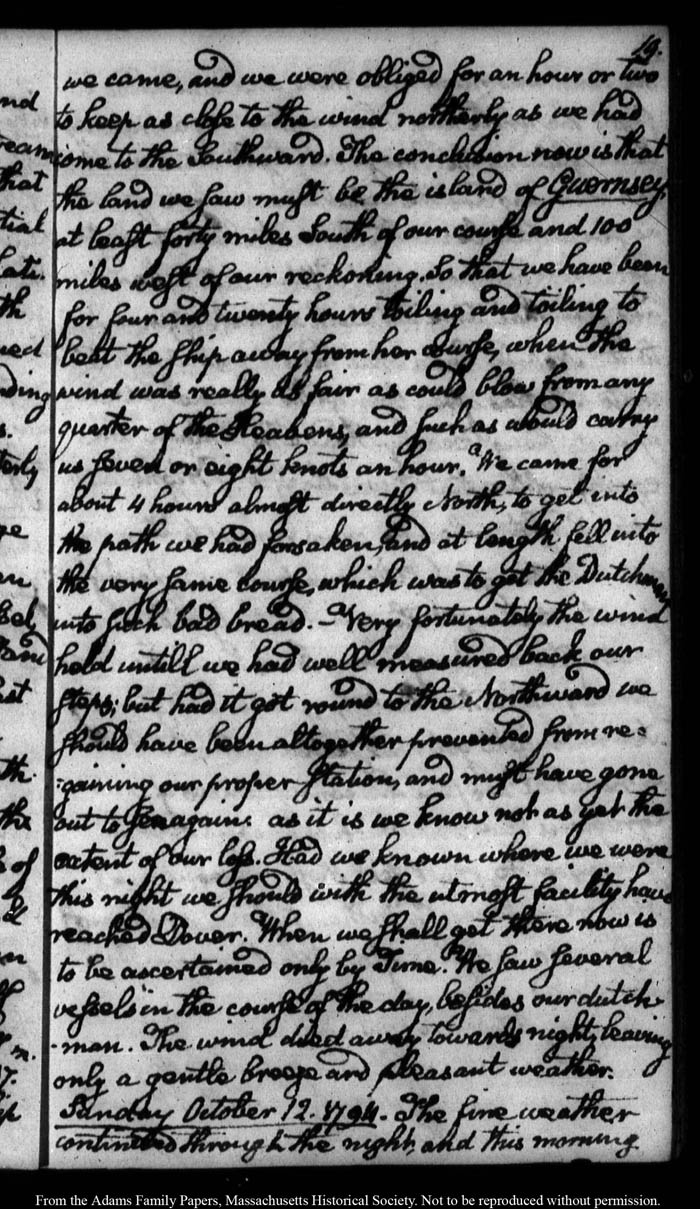 19.
we came, and we were obliged for an hour or two
nd
to keep as close to the wind northerly as we had
ream
come to the Southward. The conclusion now is that
that
the land we saw must be the island of Guernsey,
tial
at least forty miles South of our course and 100
miles west of our reckoning. So that we have been
th
for four and twenty hours toiling and toiling to
ned
beat the ship away from her course, when the
ding
wind was really as fair as could blow from any
s.
quarter of the Heavens, and such as would carry
terly
us seven or eight knots an hour. We came for
about 4 hours almost directly North, to get into
the path we had forsaken, and at length fell into
the very same course, which was to get the Dutchman
into such bad bread. - Very fortunately the wind
held untill we had well measured back our
steps; but had it got round to the Northward we
should have been altogether prevented from re=
th.
=gaining our proper station, and must have gone
the
out to sea again: as it is we know not as yet the
extent of our loss. Had we known where we were
of
this night we should with the utmost facility have
&
reached Dover. When we shall get there now is
to be ascertained only by Time. We saw several
vessels in the course of the day, besides our dutch-
-man. The wind died away towards night, leaving
only a gentle breeze and pleasant weather.
Sunday October 12. 1794. The fine weather
continued through the night, and this morning
From the Adams Family Papers, Massachusetts Historical Society. Not to be reproduced without permission.